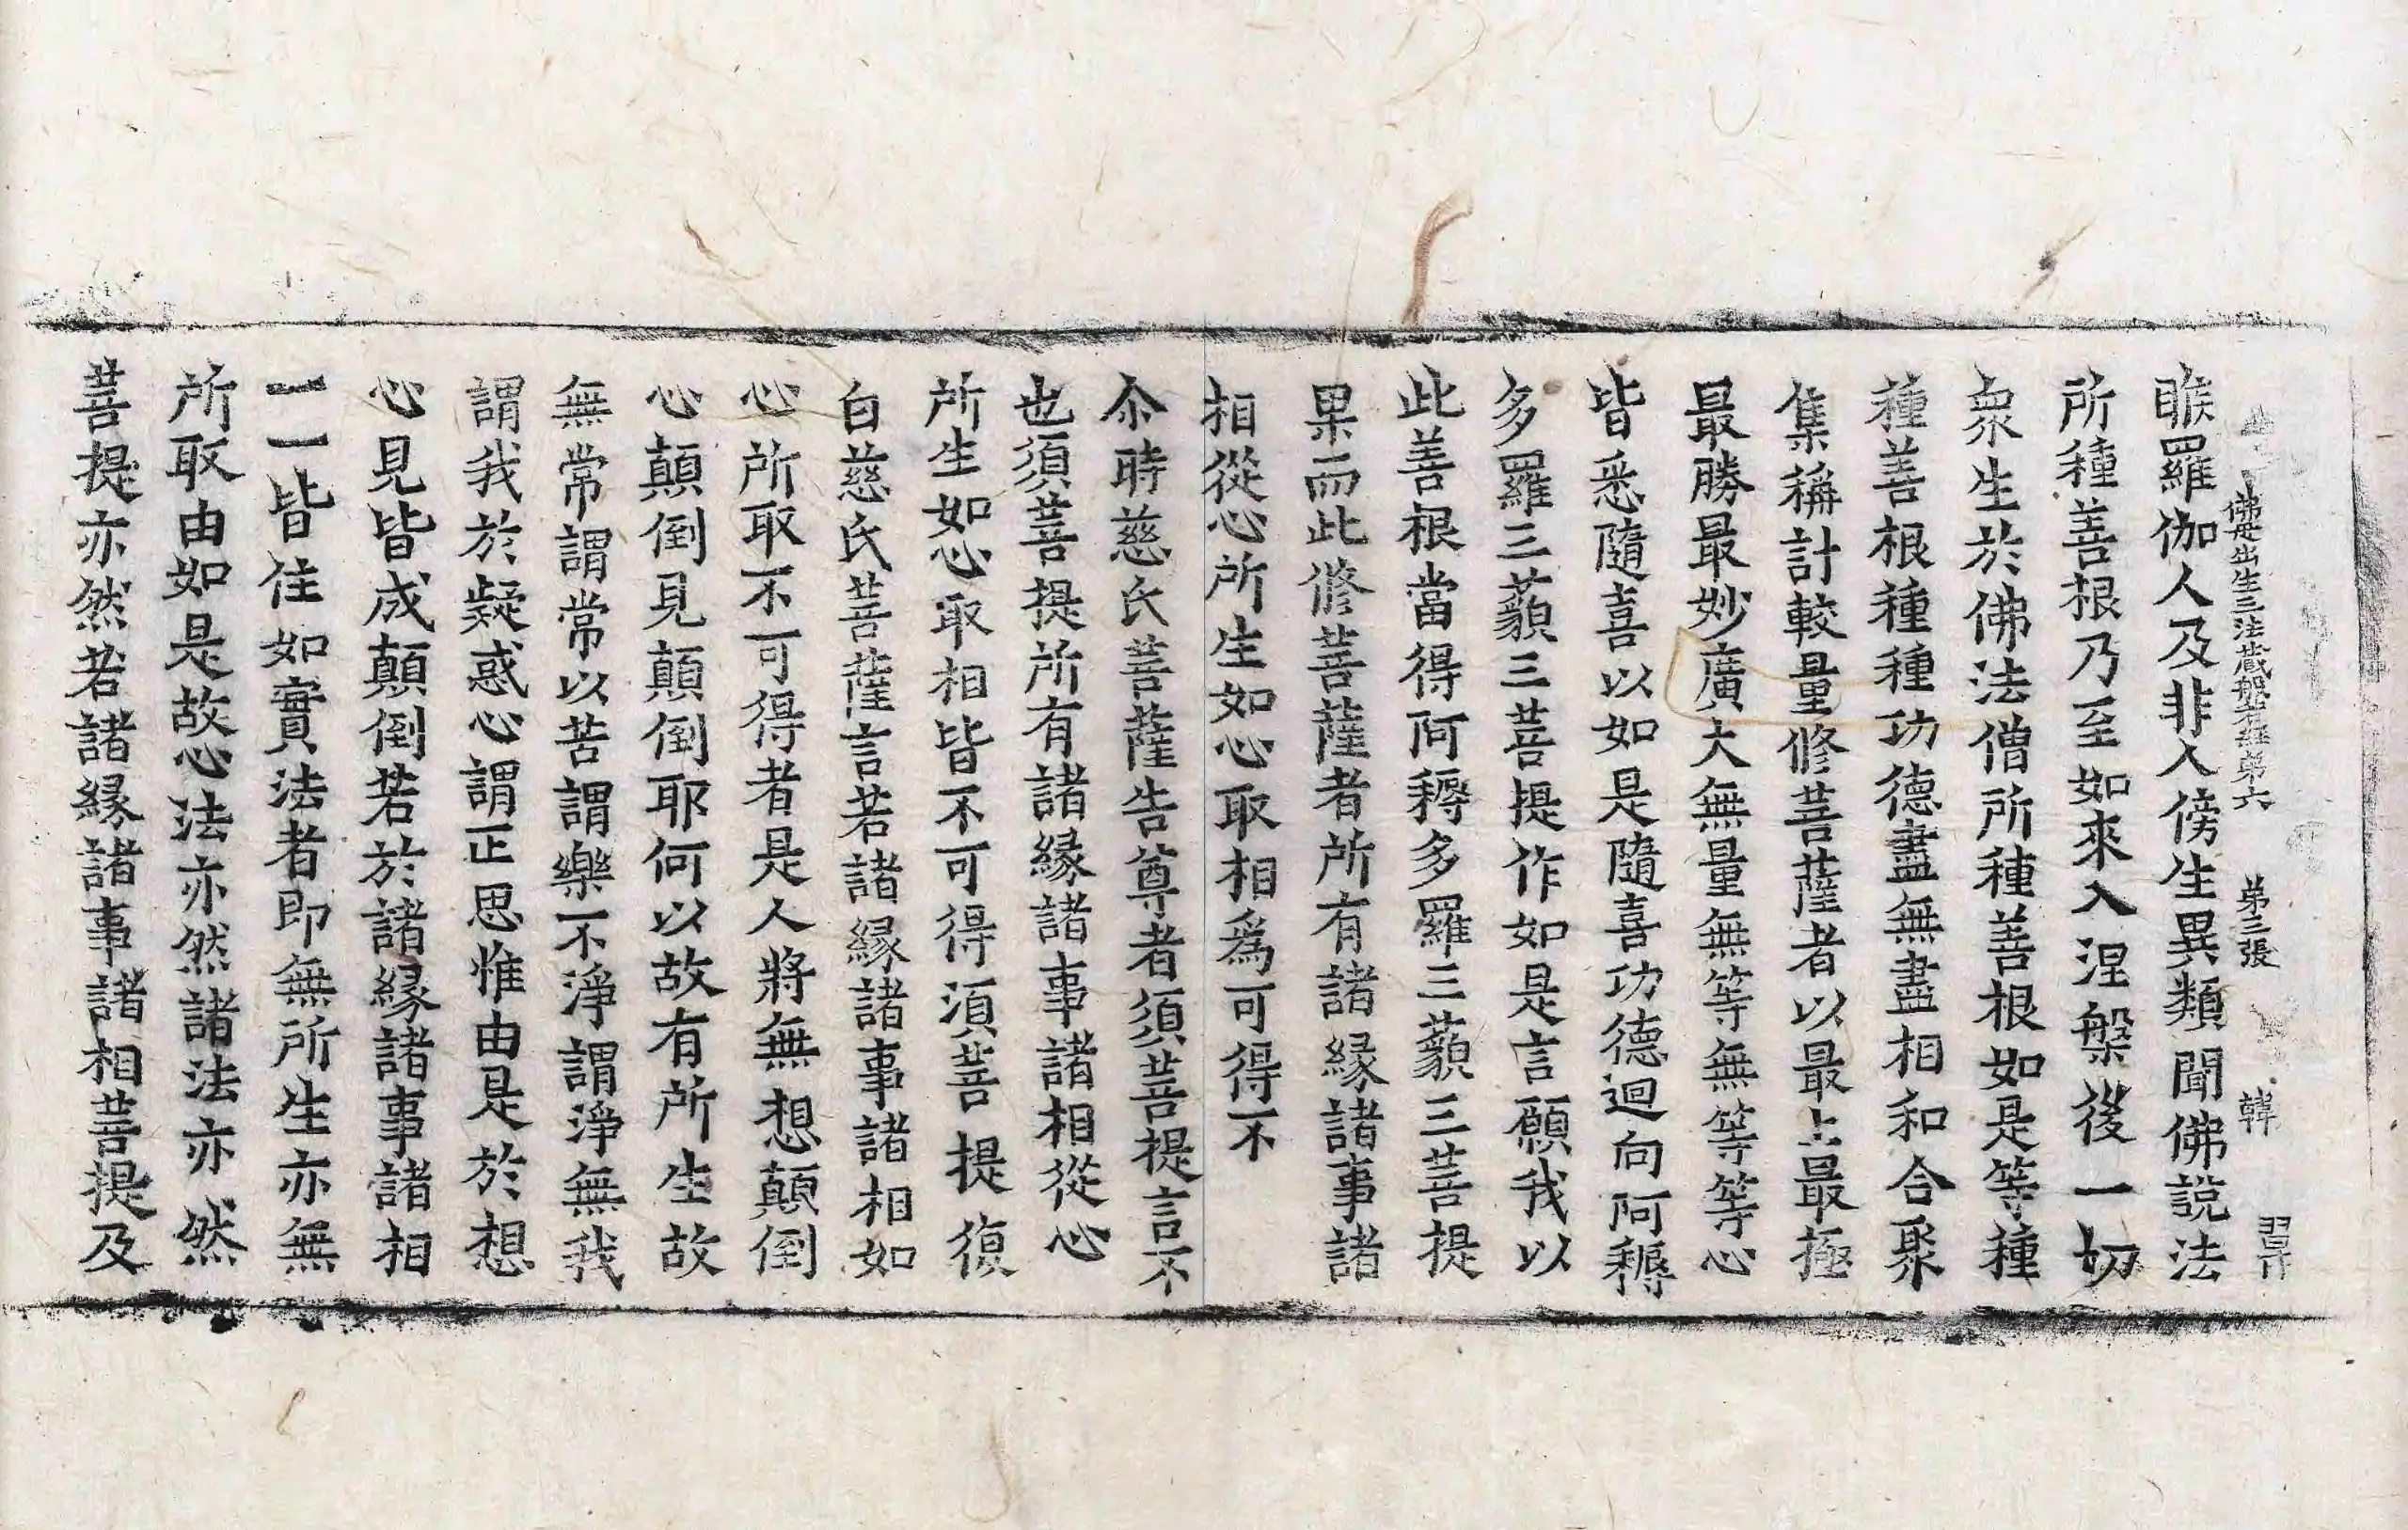 佛母出生三法藏般若經第六 第三張 韓
睺羅伽人及非人傍生異類聞佛說法
所種善根乃至如來入涅槃後一切
衆生於佛法僧所種善根如是等種
種善根種種功德盡無盡相和合聚
集稱計較量修菩薩者以最上最極
最勝最妙廣大無量無等無等等心
皆悉隨喜以如是隨喜功德迴向阿耨
多羅三藐三菩提作如是言願我以
此善根當得阿耨多羅三藐三菩提
果而此修菩薩者所有諸緣諸事諸
相從心所生如心取相爲可得不
尒時慈氏菩薩告尊者須菩提言不
也須菩提所有諸緣諸事諸相從心
所生如心取相皆不可得須菩提復
白慈氏菩薩言若諸緣諸事諸相如
心所取不可得者是人將無想顛倒
心顛倒見顛倒耶何以故有所生故
無常謂常以苦謂樂不淨謂淨無我
謂我於疑惑心謂正思惟由是於想
心見皆成顛倒若於諸緣諸事諸相
一一皆住如實法者即無所生亦無
所取由如是故心法亦然諸法亦然
菩提亦然若諸緣諸事諸相菩提及